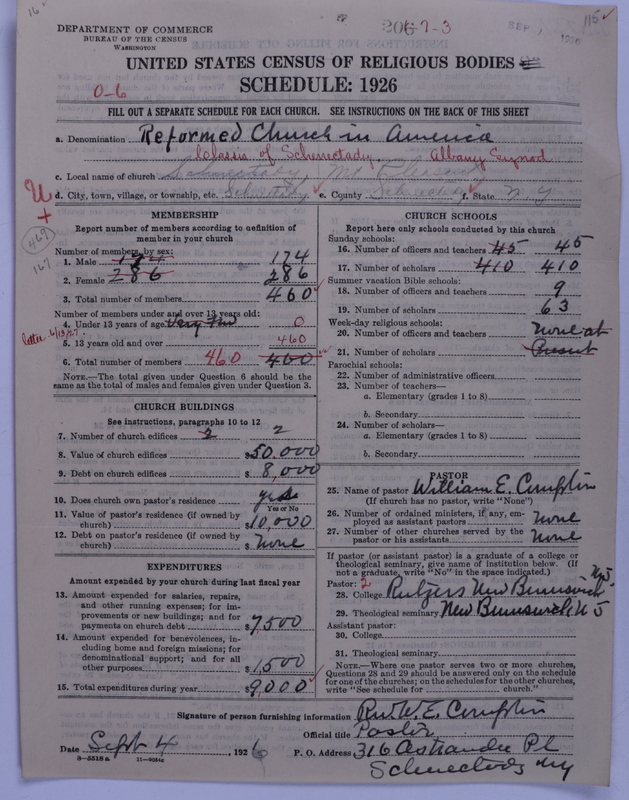 DEPARTMENT OF COMMERCE
BUREAU OF THE CENSUS
WASHINGTON
206-7-3
115
UNITED STATES CENSUS OF RELIGIOUS BODIES
SCHEDULE: 1926
0-6
FILL OUT A SEPARATE SCHEDULE FOR EACH CHURCH. SEE INSTRUCTIONS ON THE BACK OF THIS SHEET
a. Denomination Reformed Church in America
Classis of Schenectady Albany Synod
c. Local name of church Schenectady, Mt Pleasant
d. City, town, village, or township, etc. Schenectady e. County Schenectady f. State N. Y
U
+
469
167
MEMBERSHIP
Report number of members according to definition of member in your church
Number of members, by sex:
1. Male 174 174
2. Female 286 286
3. Total number of members 460
Number of members under and over 13 years old:
4. Under 13 years of age Very few 0
letter 6/13/27
5. 13 years old and over 460
6. Total number of members 460 460
NOTE.—The total given under Question 6 should be the same as the total of males and females given under Question 3.
CHURCH BUILDINGS
See instructions, paragraphs 10 to 12
7. Number of church edifices 2 2
8. Value of church edifices $50,000
9. Debt on church edifices $8,000
10. Does church own pastor's residence yes
Yes or No
11. Value of pastor's residence (if owned by church) $10,000
12. Debt on pastor's residence (if owned by church) $ None
EXPENDITURES
Amount expended by your church during last fiscal year
13. Amount expended for salaries, repairs, and other running expenses; for improvements or new buildings; and for payments on church debt $7,500
14. Amount expended for benevolences, including home and foreign missions; for denominational support; and for all other purposes $1,500
15. Total expenditures during year $9000
CHURCH SCHOOLS
Report here only schools conducted by this church
Sunday schools:
16. Number of officers and teachers 45 45
17. Number of scholars 410 410
Summer vacation Bible schools:
18. Number of officers and teachers 9
19. Number of scholars 63
Week-day religious schools:
20. Number of officers and teachers None at
21. Number of scholars Present
Parochial schools:
22. Number of administrative officers
23. Number of teachers—
a. Elementary (grades 1 to 8)
b. Secondary
24. Number of scholars—
a. Elementary (grades 1 to 8)
b. Secondary
PASTOR
25. Name of pastor William E. Compton
(If church has no pastor, write "None")
26. Number of ordained ministers, if any, employed as assistant pastors None
27. Number of other churches served by the pastor or his assistants None
If pastor (or assistant pastor) is a graduate of a college or theological seminary, give name of institution below. (If not a graduate, write "No" in the space indicated.)
Pastor: 2
28. College Rutgers New Brunswick N J
29. Theological seminary New Brunswick N J
Assistant pastor:
30. College
31. Theological seminary
NOTE.—Where one pastor serves two or more churches, Questions 28 and 29 should be answered only on the schedule for one of the churches; on the schedules for the other churches, write "See schedule for church."
Signature of person furnishing information Rev. W. E. Compton
Official title Pastor
Date Sept 4, 1926 P. O. Address 316 Pl
Schenectady N Y
8-5518 a